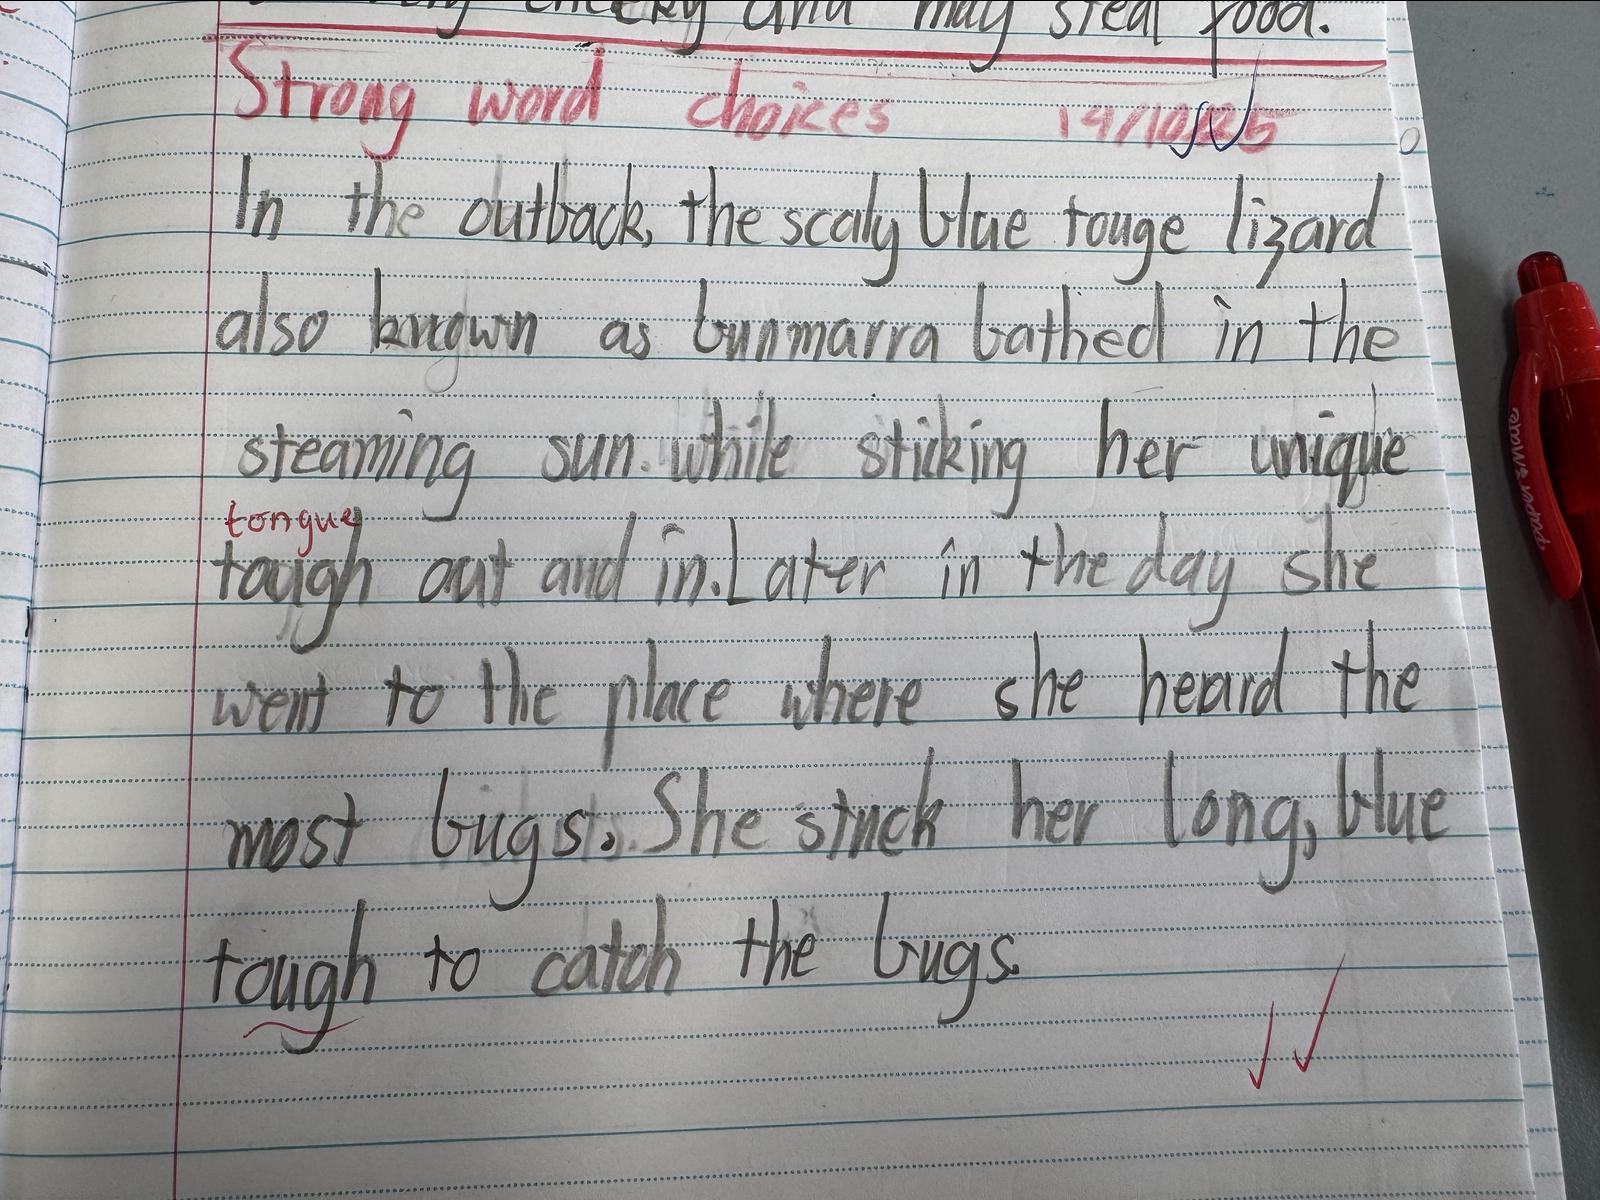 cheeky and may steal food.
Strong word choices 14/10/25
In the outback, the scaly blue touge lizard
also known as bunmarra bathed in the
steaming sun. while sticking her unique
tongue
tough out and in. Later in the day she
went to the place where she heard the
most bugs. She stuck her long, blue
tough to catch the bugs.
papermate